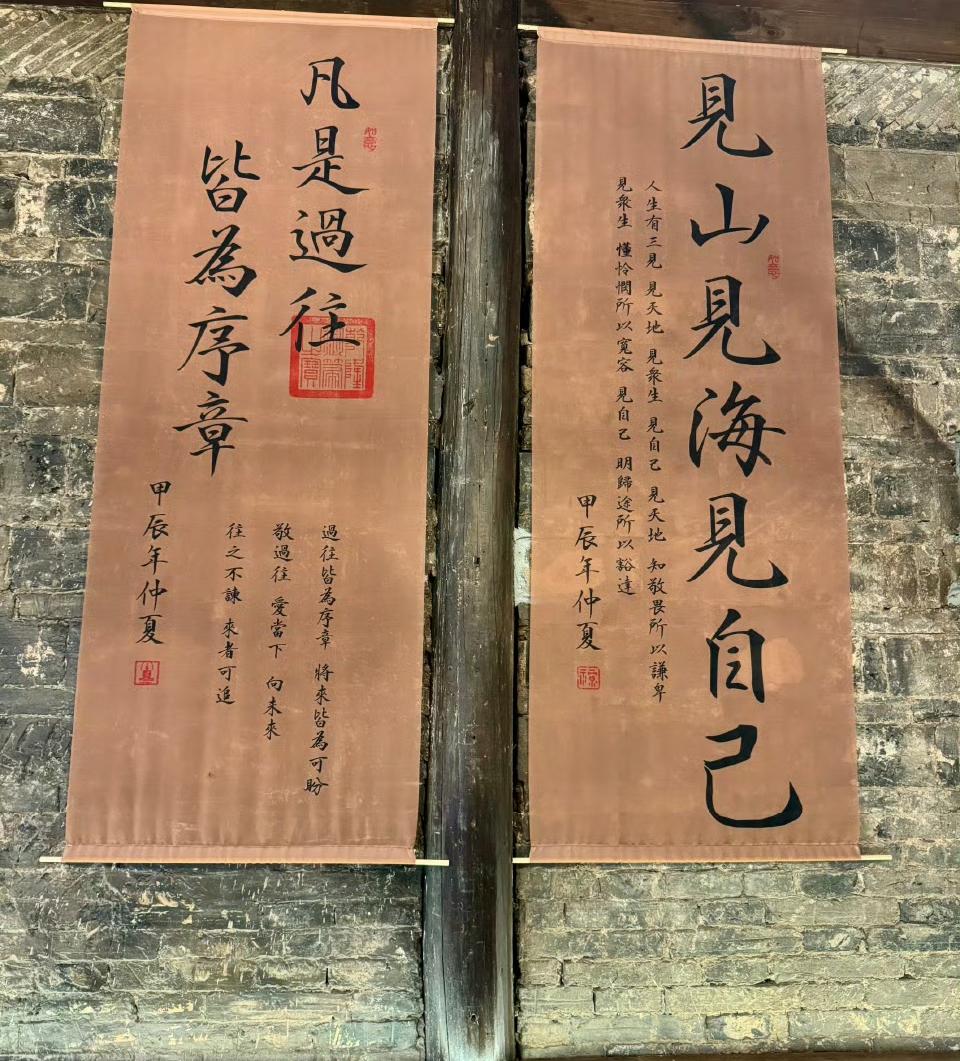 見山見海見自己
人生有三見 見天地 見衆生 見自己 見天地 知敬畏所以謙卑
見衆生 懂怜憫所以寬容 見自己 明歸途所以豁達
甲辰年仲夏
凡是過往
皆為序章
過往皆為序章 將來皆為可盼
敬過往 愛當下 向未來
往之不諫 來者可追
甲辰年仲夏